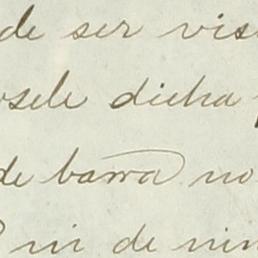 de ser vis
sele dicha
de barra no
ni de nin